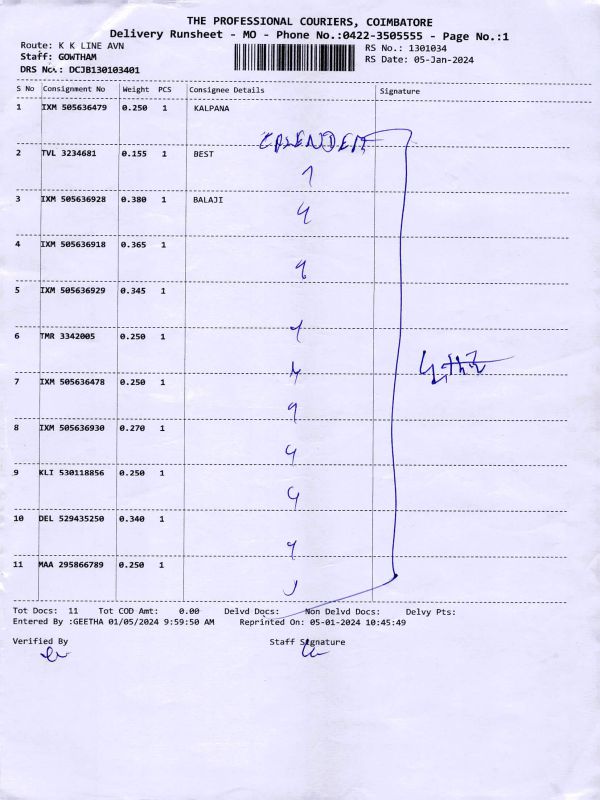 THE PROFESSIONAL COURIERS, COIMBATORE
Delivery Runsheet - MO - Phone No.:0422-3505555 - Page No.:1
Route: K K LINE AVN RS No.: 1301034
Staff: GOWTHAM RS Date: 05-Jan-2024
DRS No.: DCJB130103401
S No Consignment No Weight PCS Consignee Details Signature
1 IXM 505636479 0.250 1 KALPANA
CALENDER
2 TVL 3234681 0.155 1 BEST
3 IXM 505636928 0.380 1 BALAJI
4 IXM 505636918 0.365 1
5 IXM 505636929 0.345 1
6 TMR 3342005 0.250 1
7 IXM 505636478 0.250 1
8 IXM 505636930 0.270 1
9 KLI 530118856 0.250 1
10 DEL 529435250 0.340 1
11 MAA 295866789 0.250 1
Tot Docs: 11 Tot COD Amt: 0.00 Delvd Docs: Non Delvd Docs: Delvy Pts:
Entered By :GEETHA 01/05/2024 9:59:50 AM Reprinted On: 05-01-2024 10:45:49
Verified By Staff Signature